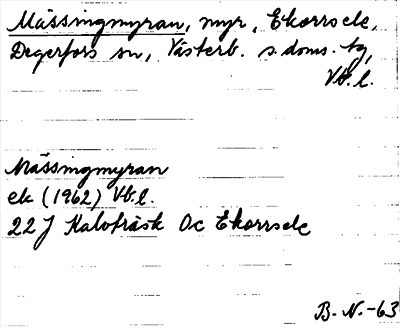 Mässingmyran, myr, Ekorrsele,
Degerfors sn, Västerb. s. doms. tg,
Vb. l.
Mässingmyran
ek (1962) Vb.l.
22 J Kalvträsk 0c Ekorrsele
B. N. -63